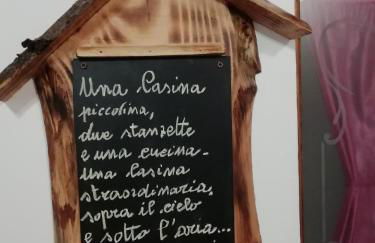 Una Casina
piccolina,
due stanzette
e una cucina-
una Casina
straordinaria,
sopra il cielo
e sotto l'aria...